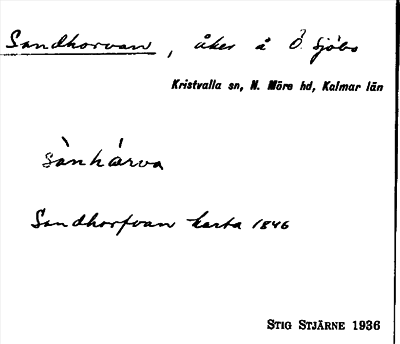 Sandhorvan, åker å Ö. Sjöbo
Kristvalla sn, N. Möre hd, Kalmar län
sànhárva
Sandhorfvan karta 1846
STIG STJÄRNE 1936